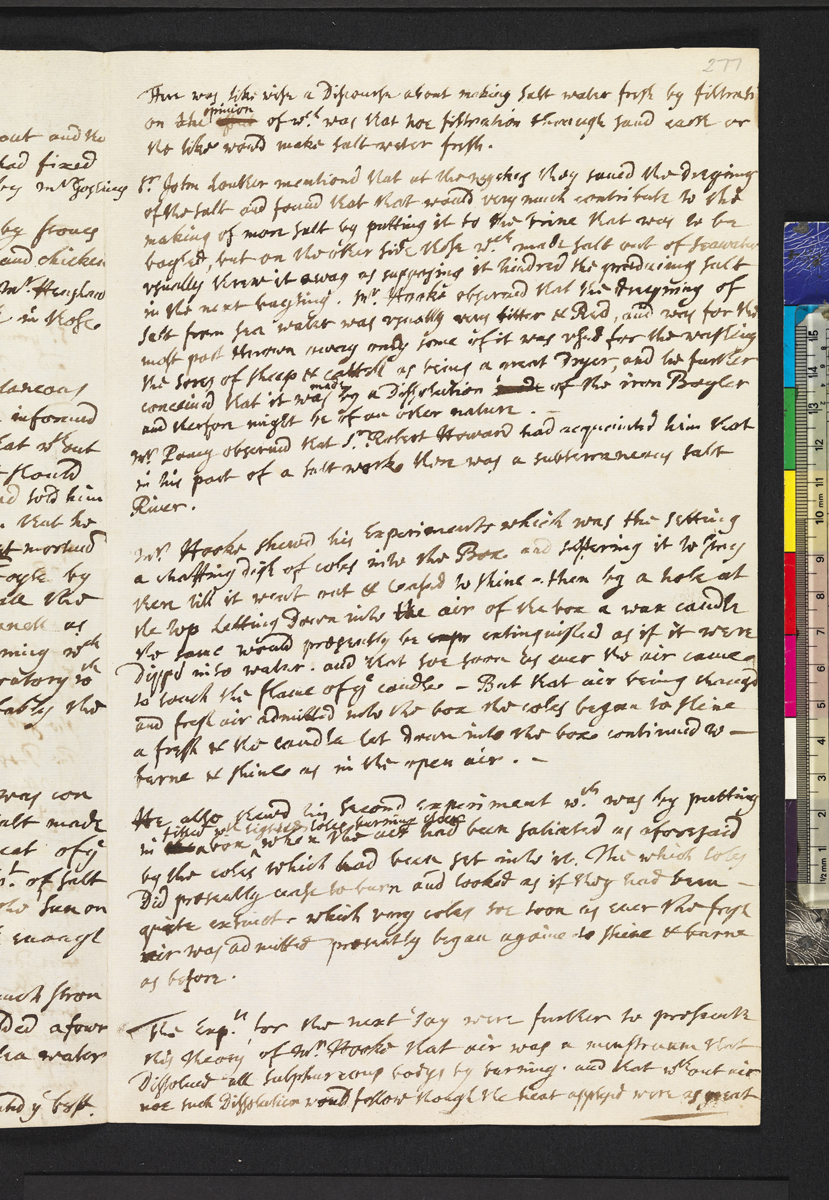 277
There was likewise a Discourse about making salt water fresh by filtrati
on the opinion of wch was that noe filtration through sand earth or
the like would make salt water fresh.
Sr. John Lowther mentiond that at the wyches they saued the Dregings
of the salt and found that that would very much contribute to the
making of more salt by putting it to the brine that was to be
boyled, but on the other side those wch made salt out of seawater
usually threw it away as supposing it hindred the producing salt
in the next boyling. Mr. Hooke obserued that the Dregning of
salt from sea water was usually very bitter & Red, and was for the
most part thrown away only some of it was usd for the washing
the sores of sheep & cattell as being a great Dryer, and he further
conceiued that it was made by a Dissolution of the iron Boyler
and therfore might be of an other nature.
Mr. Pacey obserued that Sr. Robert Howard had acquainted him that
in his part of a salt work there was a subterraneous salt
River.
Mr. Hooke shewd his Experiments which was the setting
a chaffing dish of coles into the Box and suffering it to stay
there till it went out & ceased to shine - then by a hole at
the top letting Down into the air of the box a wax candle
the same would presently be extinguished as if it were
Dippd into water. and that soe soon as euer the air came
to touch the flame of ye candle - But that air being changed
and fresh air admitted into the box the coles began to shine
a fresh & the candle let Down into the box continued to -
burne & shine as in the open air. -
He also shewd his second experiment wch was by putting
in a box filled wth lighted coles burning when the air had been satiated as aforesaid
by the coles which had been set into it. The which coles
Did presently cease to burn and looked as if they had been -
quite extinct - which very coles soe soon as euer the fresh
air was admitted presently began againe to shine & burne
as before.
The Expts. for the next Day were further to prosecute
this theory of Mr. Hooke that air was a menstruum that
Dissolued all sulphureous bodys by burning. and that wthout air
noe such Dissolution would follow though the heat applyed were as great
out and the
had fixed
by frones
and chicken
Mr. Henshaw
in those
informed
that wthout
should
and told him
that he
oyle by
all the
as
wth
the
was con
salt made
of ye
of salt
the sun on
enough
much stron
afour
sea water
and ye best.